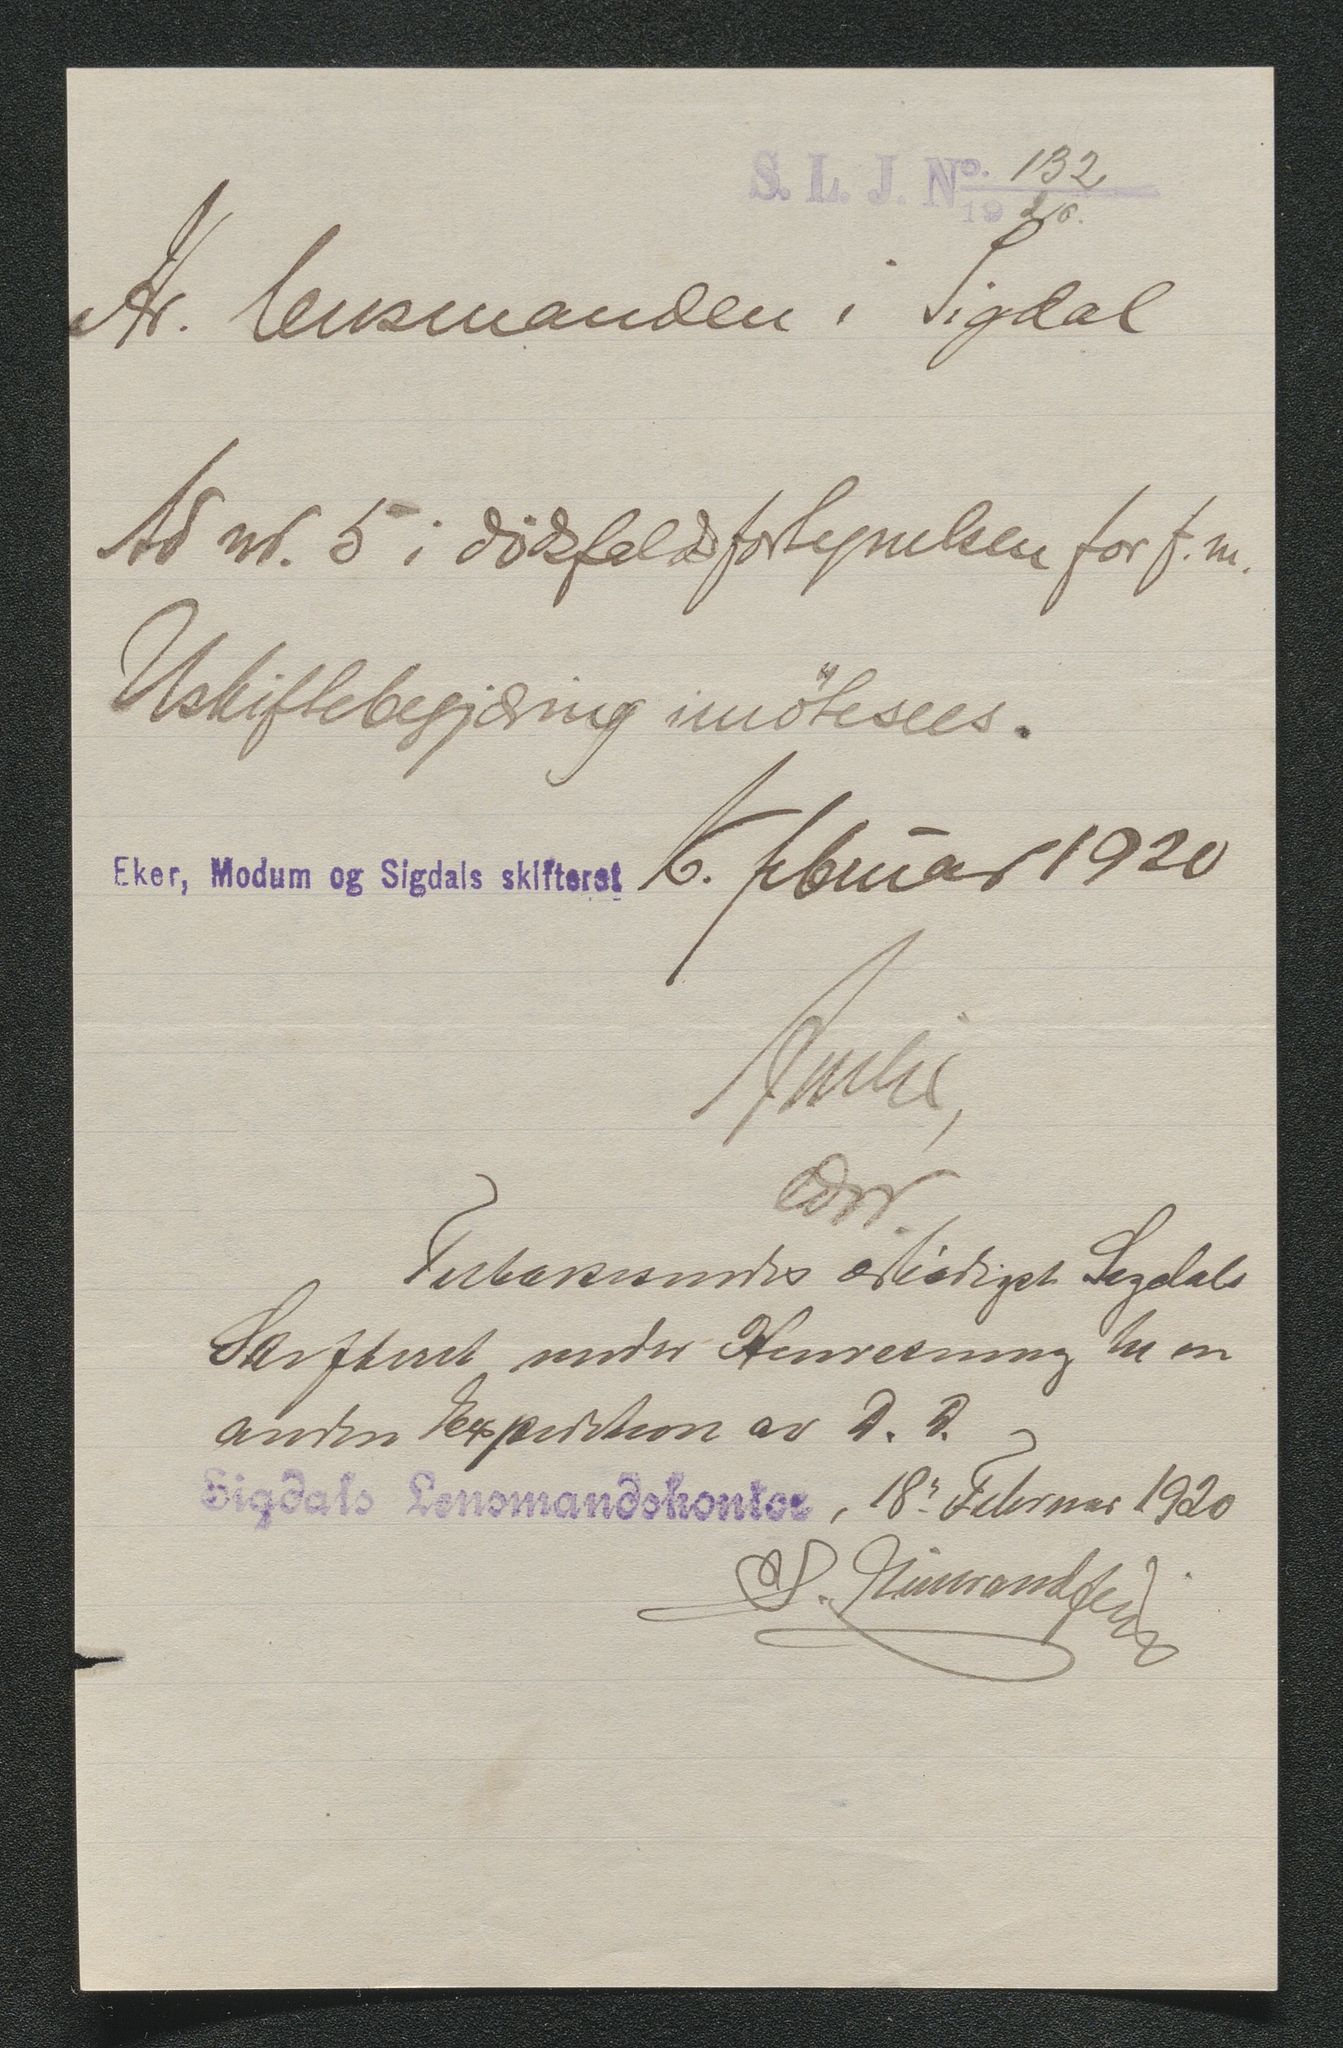 S. L. J. No. 132
19 20.
Hr. lensmanden i Sigdal
Ad nr. 5 i dödsfaldsfortegnelsen for f. m.
Uskiftebegjæring imötesees.
Eker, Modum og Sigdals skifteret 6. februar 1920
Tilbakesendes ærbödigst Sigdals
Skifteret under Henvisning til en
anden Expedition av D. D.
Sigdals Lensmandskontor, 18. Februar 1920